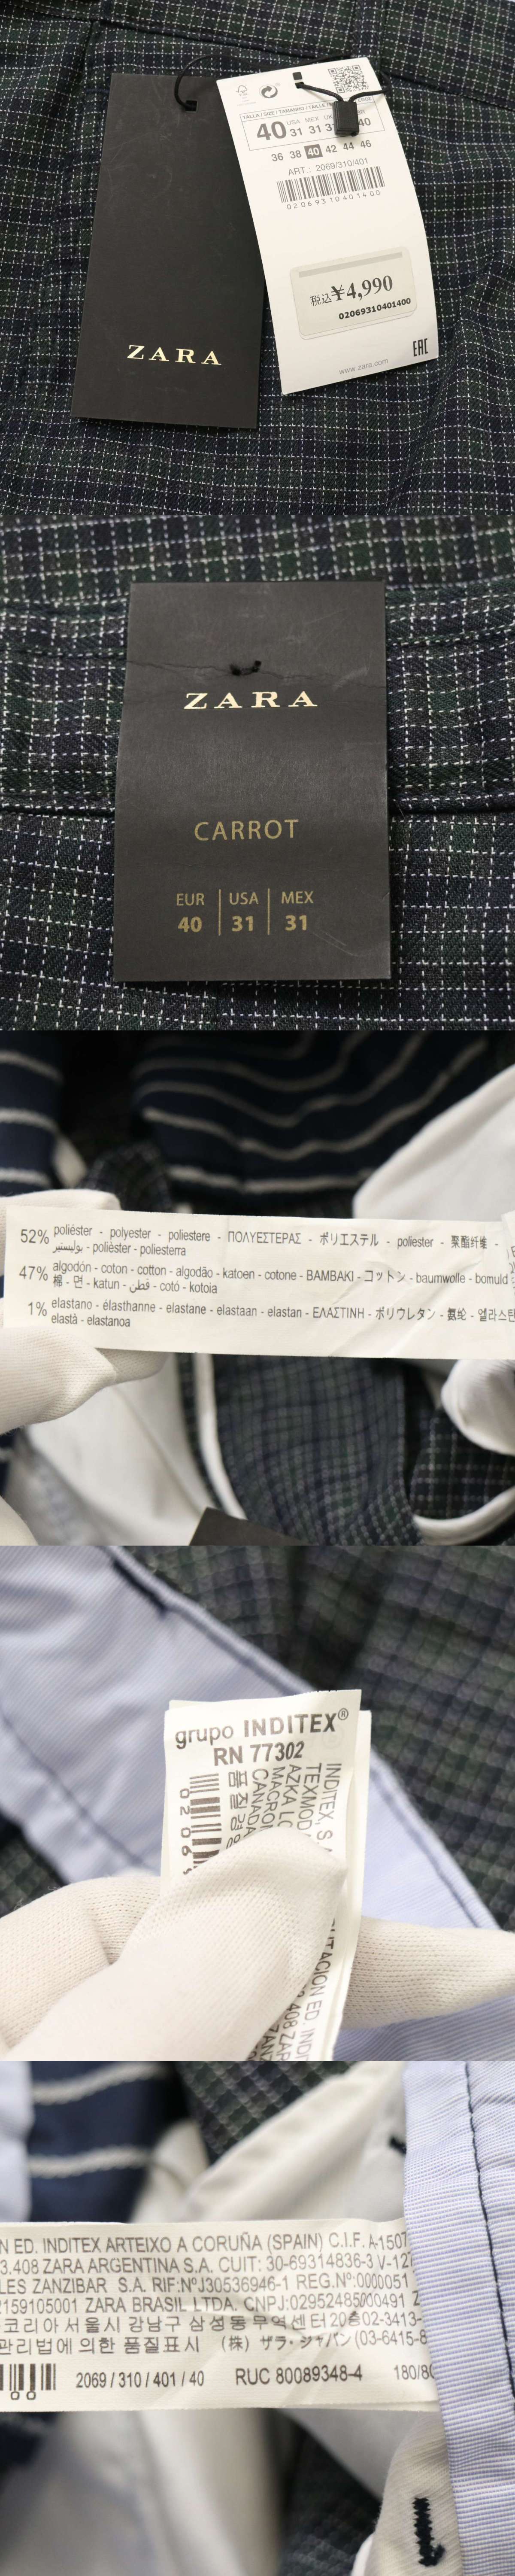 ZARA
TALLA / SIZE / TAMANHO / TAILLE
40 USA 31 MEX 31 40
36 38 40 42 44 46
ART.: 2069/310/401
02069310401400
税込¥4,990
02069310401400
www.zara.com
EAC
ZARA
CARROT
EUR USA MEX
40 31 31
52% poliéster - polyester - poliestere - ΠΟΛΥΕΣΤΕΡΑΣ - ポリエステル - poliester - 聚酯纤维 -
بوليستير - polièster - poliesterra
47% algodón - coton - cotton - algodão - katoen - cotone - BAMBAKI - コットン - baumwolle - bomuld
棉 - 면 - katun - قطن - cotó - kotoia
1% elastano - élasthanne - elastane - elastaan - elastan - ΕΛΑΣΤΙΝΗ - ポリウレタン - 氨纶 - 엘라스탄
elastà - elastanoa
grupo INDITEX®
RN 77302
INDITEX, S
TEXMOD
AZKA LO
MACRO
CANADA
품질경영
0206
UTACION ED. INDI
408 ZAR
N ED. INDITEX ARTEIXO A CORUÑA (SPAIN) C.I.F. A-1507
3.408 ZARA ARGENTINA S.A. CUIT: 30-69314836-3 V-127
LES ZANZIBAR S.A. RIF:NºJ30536946-1 REG.Nº:0000051
2159105001 ZARA BRASIL LTDA. CNPJ:02952485000491
코리아 서울시 강남구 삼성동 무역센터 20층 02-3413-
관리법에 의한 품질표시 (株) ザラ・ジャパン (03-6415-8
2069 / 310 / 401 / 40 RUC 80089348-4 180/80